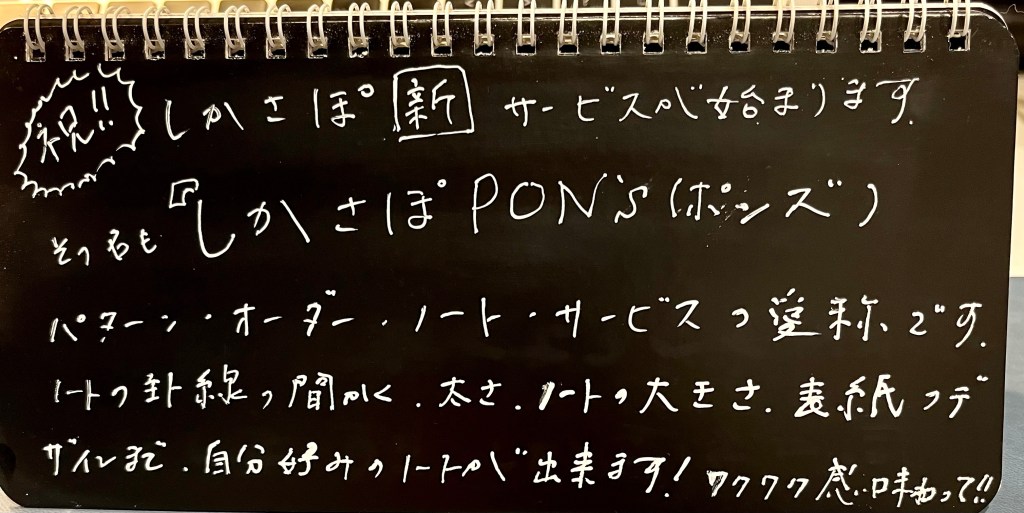 祝!! しかさぽ 新 サービスが始まります.
その名も『しかさぽPON's (ポンズ)
パターン・オーダー・ノート・サービスの愛称です.
ノートの罫線の間かく、太さ、ノートの大きさ、表紙のデ
ザインまで、自分好みのノートが出来ます! ワクワク感味わって!!